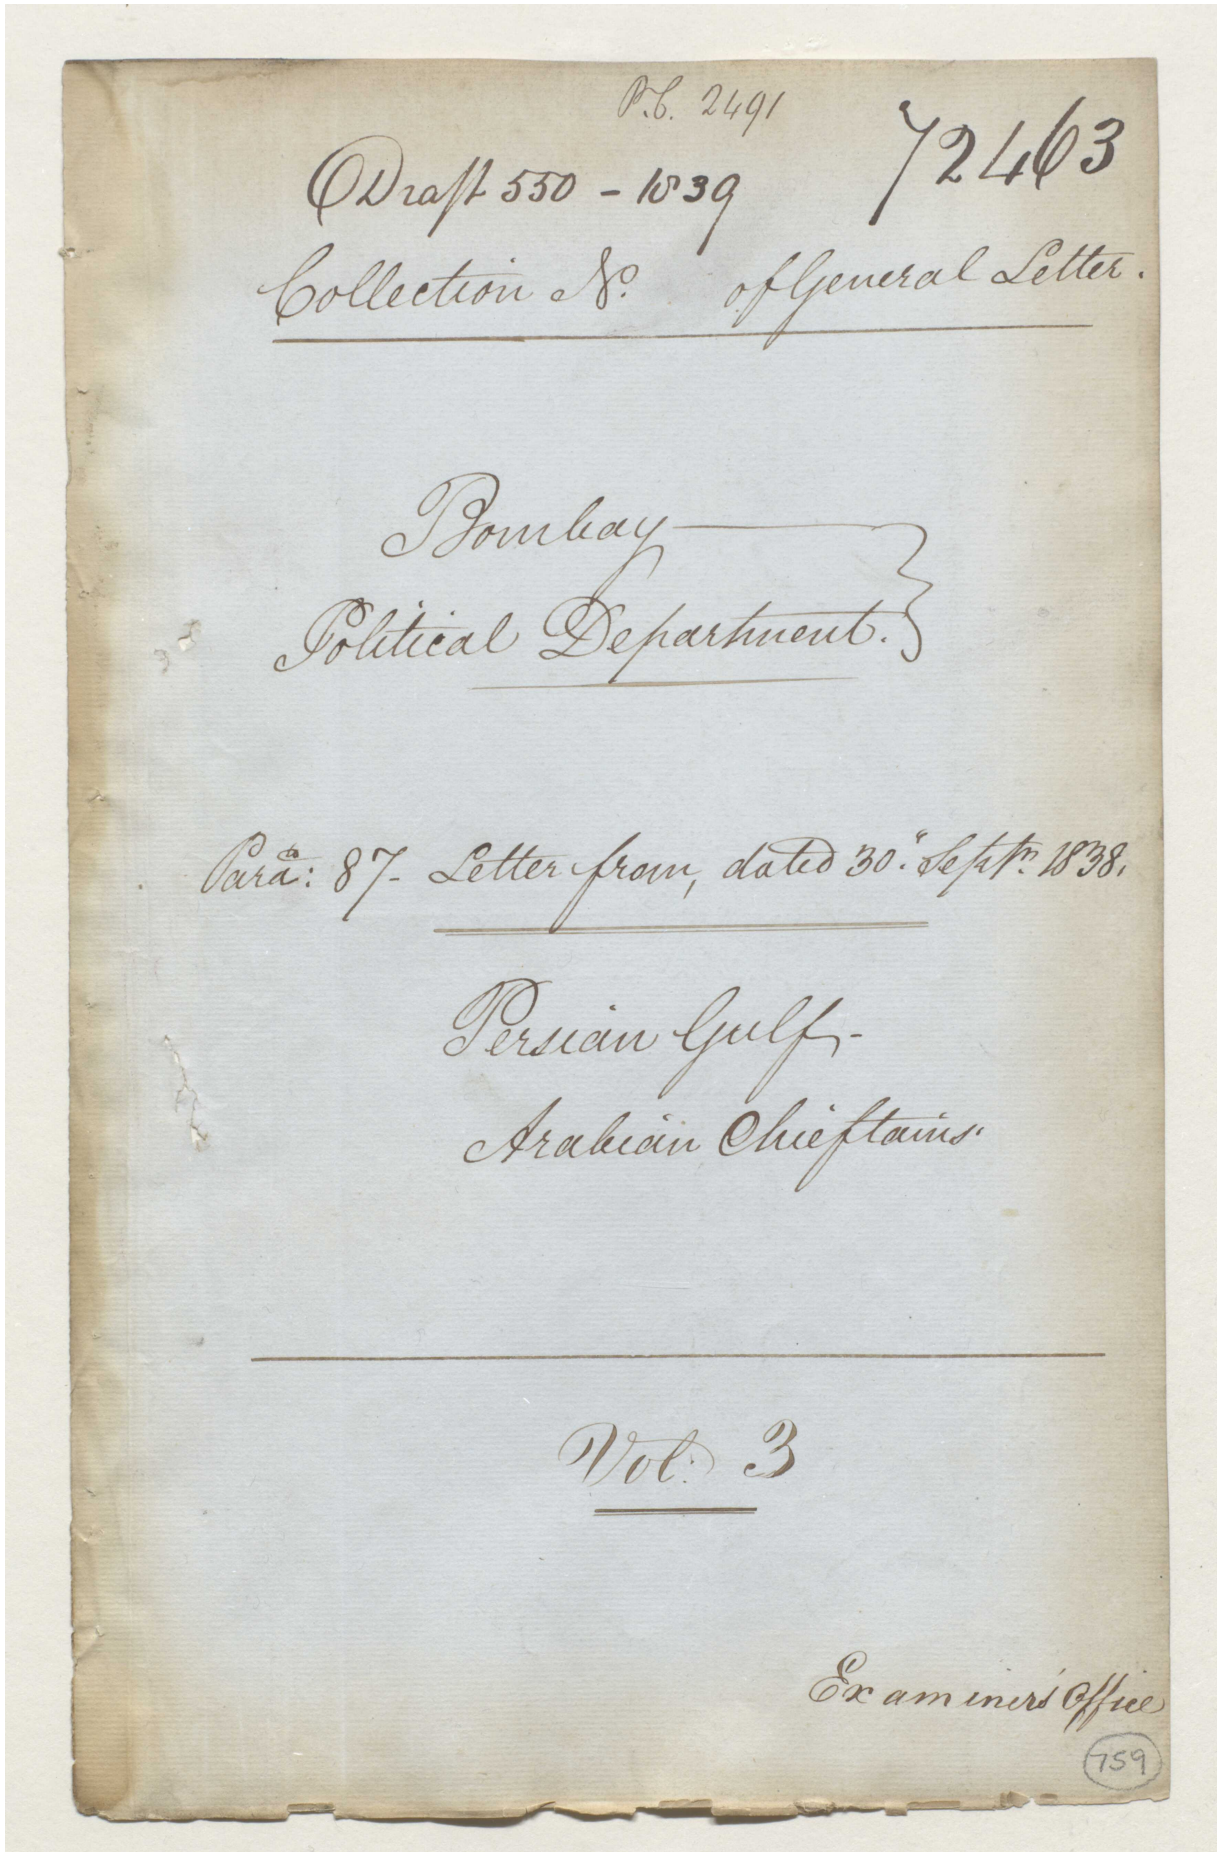 P.C. 2491
72463
Draft 550 - 1839
Collection No. of General Letter.
Bombay
Political Department.
Para: 87- Letter from, dated 30." Septr. 1838.
Persian Gulf-
Arabian Chieftains.
Vol: 3
Examiner's Office
759